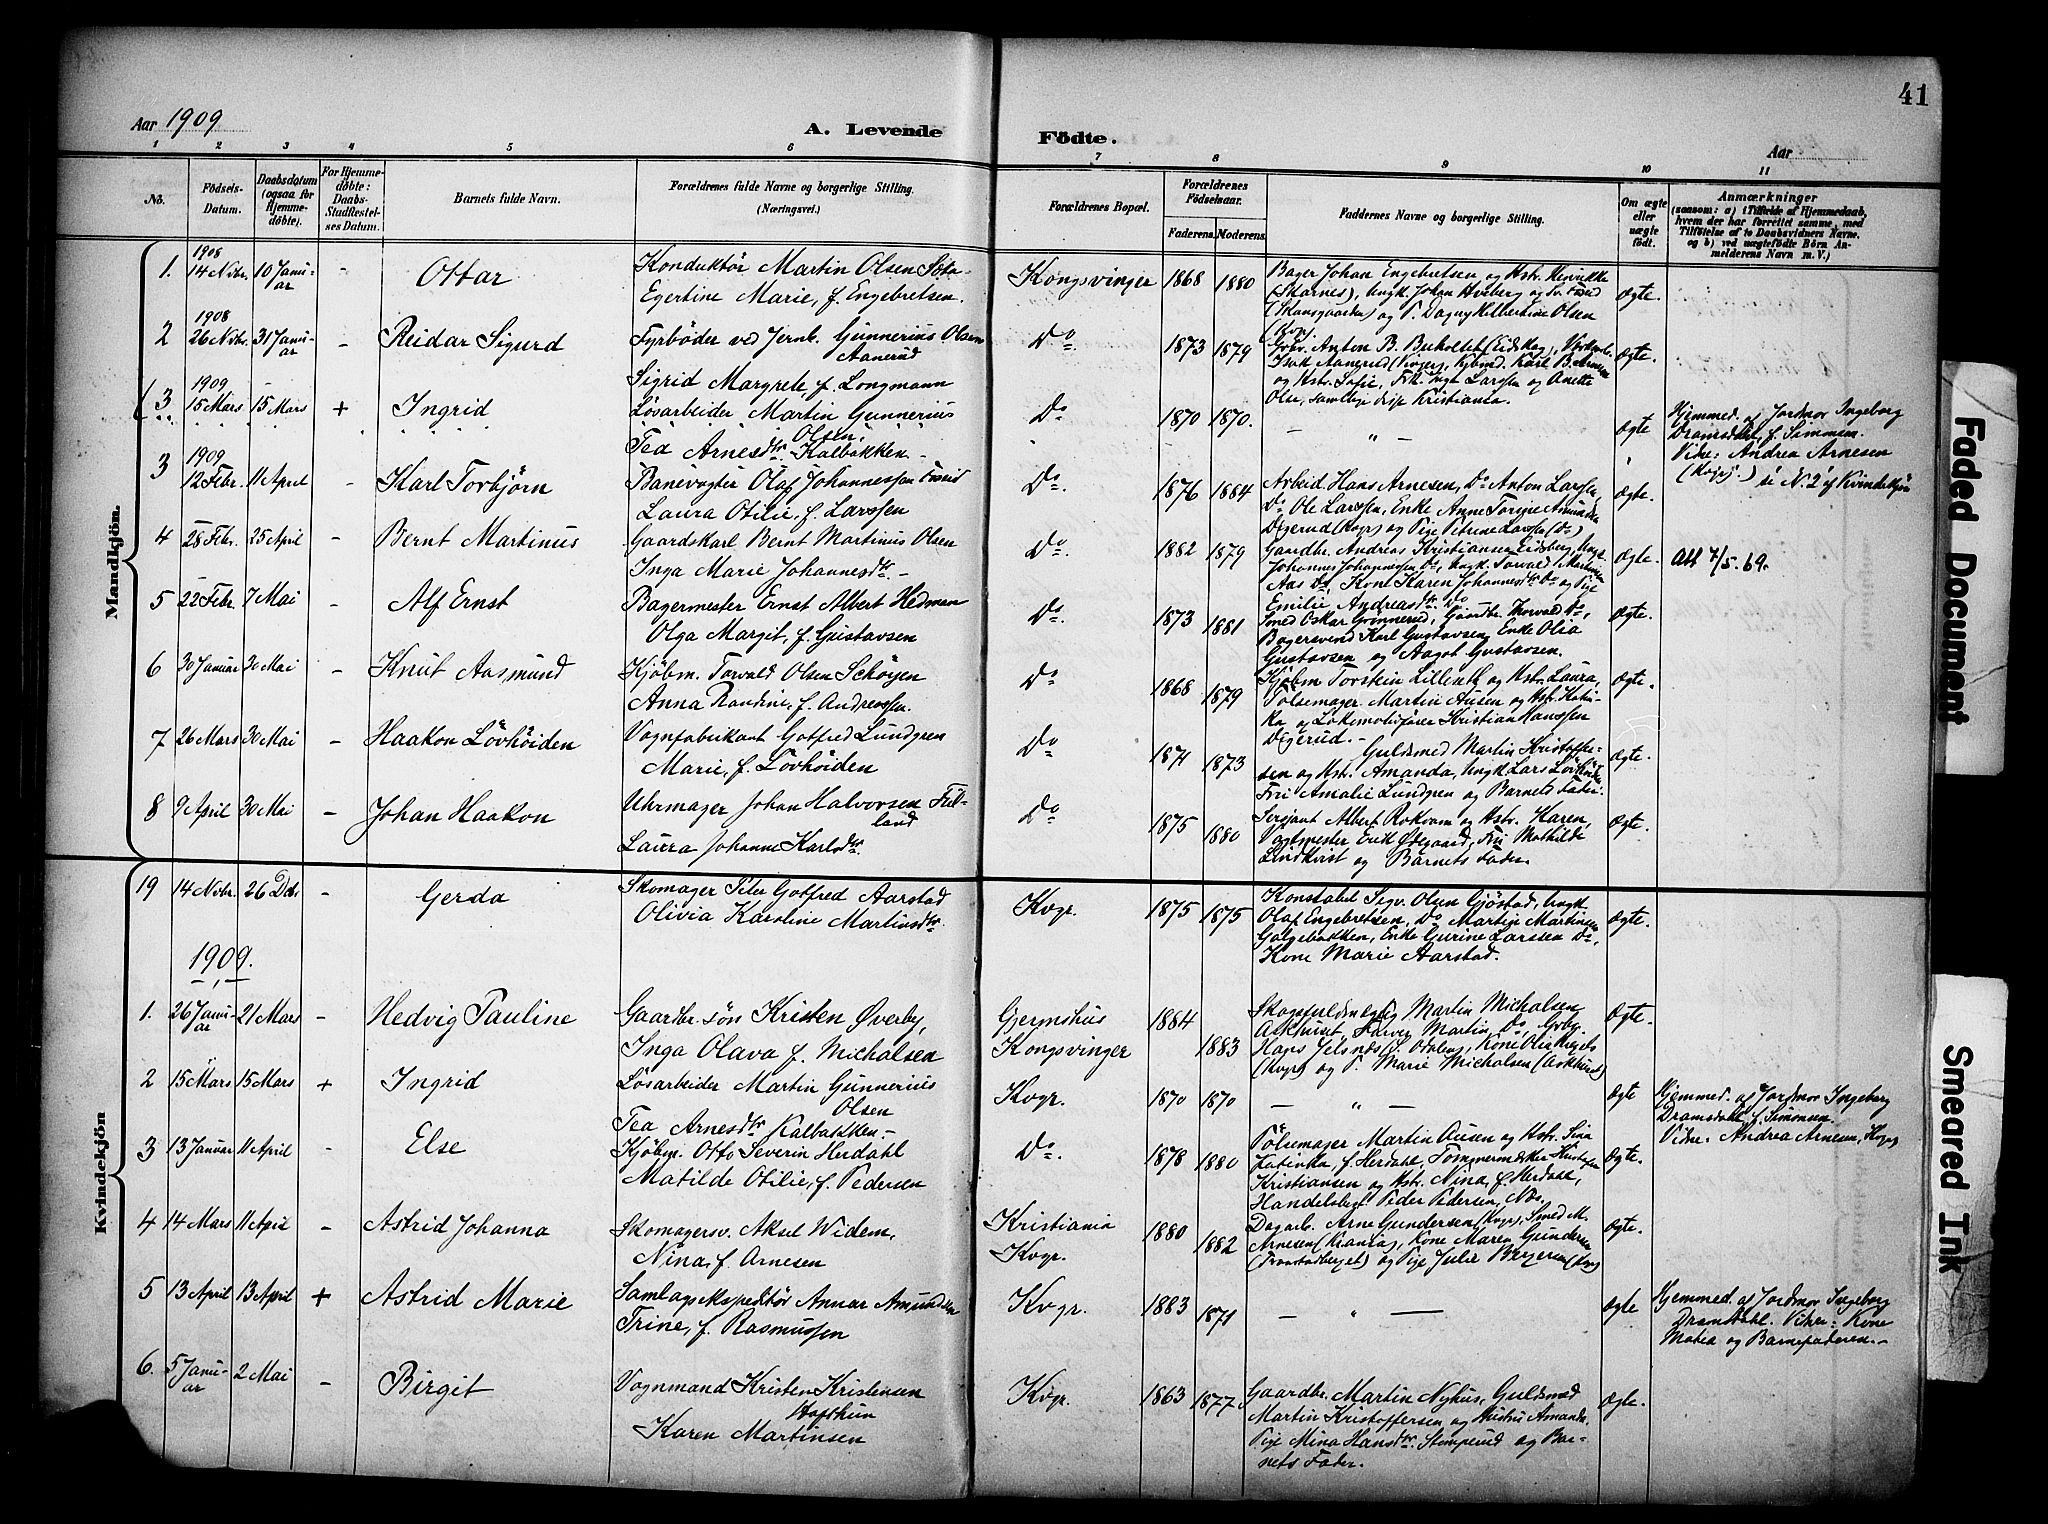 41
Aar 1909
A. Levende
Födte.
Aar
1 2 3 4 5 6 7 8 9 10 11
No.
Födsels-Datum.
Daabsdatum (ogsaa for Hjemmedöbte).
For Hjemmedöbte: Daabs-Stadfestelses Datum.
Barnets fulde Navn.
Forældrenes fulde Navne og borgerlige Stilling. (Næringsvei.)
Forældrenes Bopæl.
Forældrenes Födselsaar.
Faderens. Moderens.
Faddernes Navne og borgerlige Stilling.
Om ægte eller uægte födt.
Anmærkninger
(saasom: a) i Tilfælde af Hjemmedaab, hvem der har forrettet samme, med Tilföielse af to Daabsvidners Navne, og b) ved uægtefödte Börn Anmelderens Navn m. V.)
Mandkjön.
1. 1908 14 Novbr. 10 Januar - Ottar
Konduktör Martin Olsen
Egertine Marie, f. Engebretsen.
Kongsvinger 1868 1880
Bager Johan Engebretsen og Hstr. Henrikke
(Skarnes), Ungk. Johan Hveberg og
(Skansgaarden) og P. Dagny Hilbertine Olsen
(Kvgr.) Ægte.
2 1908 26 Novbr. 31 Januar - Reidar Sigurd
Fyrböder ved Jernb. Gunnerius Olsen
Aanerud
Sigrid Margrete f. Longmann
Do 1873 1879
Anton B. Buholtet (Eidskog),
og Hstr. Sofie, Frk. Inga Larssen og Anette
Olsen, samtlige disse Kristiania.
Ægte.
(3 1909 15 Mars 15 Mars + Ingrid
Lösarbeider Martin Gunnerius
Olsen,
Tea Arnesdtr. Kalbakken -
Do 1870 1870. - " - Ægte
Hjemmed. af Jordmor Ingeborg
Dramsdahl, f. Simonsen.
Vidne: Andrea Arnesen
(Kvgr.) se N 2 af Kvindekjön
3 1909 12 Febr. 11 April - Karl Torbjörn
Banevogter Olaf Johannessen
Laura Otilie, f. Larssen
Do. 1876 1884
Arbeid. Hans Arnesen, Do Anton Larssen,
Do Ole Larssen, Enke Anne
Digerud (Kvgr) og Pige Petrine Larssen (Do)
Ægte.
4 28 Febr. 25 April - Bernt Martinus
Gaardskarl Bernt Martinus Olsen
Inga Marie Johannesdtr. -
Do. 1882 1879
Gaardbr. Andreas Kristiansen Eidsberg, Ungk.
Johannes Johannessen Do, Ungk. Torvald
Aas Do, Kone Karen Johannesdtr. Do og Pige
Emilie Andreasdtr. Do
Ægte. Att 7/5. 69.
5 22 Febr. 7 Mai - Alf Ernst
Bagermester Ernst Albert Hedman
Olga Margit, f. Gustavsen
Do. 1873 1881
Smed Oskar Grönnerud, Gaardbr. Thorvald Do,
Bagersvend Karl Gustavsen, Enke Olia
Gustavsen og Aagot Gustavsen.
Ægte.
6 30 Januar 30 Mai - Knut Aasmund
Kjöbm. Torvald Olsen Schöyen
Anna Randine, f. Andreassen.
Do 1868 1879
Kjöbm Torstein Lilleseth og Hstr. Laura,
Pölsemager Martin Ausen og Hstr. Katin-
ka og Lokomotivförer Kristian Hanssen
Digerud. -
Ægte.
7 26 Mars 30 Mai - Haakon Lövhöiden
Vognfabrikant Gotfred Lundgren
Marie, f. Lövhöiden
Do 1871 1873
Guldsmed Martin Kristoffer-
sen og Hstr. Amanda, Ungk Lars Lövhöiden
Frk. Amalie Lundgren og Barnets Fader.
Ægte.
8 9 April 30 Mai - Johan Haakon
Uhrmager Johan Halvorsen
land
Laura Johanne Karlsdtr.
Do 1875 1880
Serjant Albert Rokvam og Hstr. Karen,
Vagtmester Erik Ødegaard, Frk. Mathilde
Lindkvist og Barnets Fader.
Ægte.
Kvindekjön
19 14 Novbr. 26 Dcbr - Gerda
Skomager Peter Gotfred Aarstad
Olivia Karoline Martinsdtr.
Kvgr. 1875 1875
Konstabel Sigv. Olsen Gjöstad, Ungk.
Olaf Engebretsen, Do Martin Martinsen
Galgebakken, Enke Gurine Larssen Do,
Kone Marie Aarstad.
Ægte.
1909.
1. 26 Januar 21 Mars - Hedvig Pauline
Gaardbr. sön Kristen Øverby,
Inga Olava f. Michalsen
Gjermshus
Kongsvinger 1884 1883
Skogsfuldmægtig Martin Michalsen,
Martin Do,
(Kvgr) og P. Marie Michalsen
Ægte.
2 15 Mars 15 Mars + Ingrid
Lösarbeider Martin Gunnerius
Olsen
Tea Arnesdtr Kalbakken. -
Kvgr. 1870 1870 - " - Ægte
Hjemmed. af Jordmor Ingeborg
Dramsdahl f. Simonsen.
Vidne: Andrea Arnesen, Kvgr
3 13 Januar 11 April - Else
Kjöbm. Otto Severin Herdahl
Matilde Otilie, f. Pedersen
Do. 1878 1880
Pölsemager Martin Ausen og Hstr. Sina
Katinka, f. Herdahl, Tömmermerker
Kristiansen og Hstr. Nina, f. Herdahl,
Handelsbest. Peder Pedersen, Næs.
Ægte.
4 14 Mars 11 April - Astrid Johanna
Skomagersv. Aksel Widem,
Nina, f. Arnesen
Kristiania
Kvgr. 1880 1882
Dagarb. Arne Gundersen (Kvgr), Smed M.
Arnesen (Krania), Kone Maren Gundersen
og Pige Julie Bergersen (Kvgr)
Ægte.
5 13 April 13 April + Astrid Marie
Samlagsekspeditör Annar Amundsen
Trine, f. Rasmussen
Kvgr. 1883 1871 - " - Ægte
Hjemmed. af Jordmor Ingeborg
Dramsdahl. Vidner: Kone
Matea og Barnefaderen. -
6. 5 Januar 2 Mai - Birgit
Vognmand Kristen Kristensen
Karen Martinsen
Kvgr. 1863 1877
Gaardbr. Martin Nyhus, Guldsmed
Martin Kristoffersen og Hustru Amanda,
Pige Mina Hansdtr. Stemperud og Bar-
nets Fader.
Ægte.
Faded Document
Smeared Ink